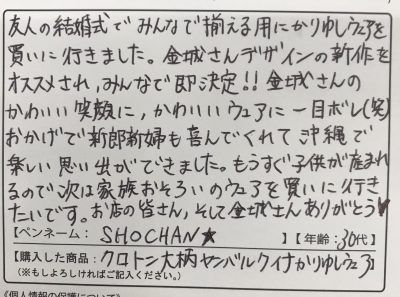 友人の結婚式でみんなで揃える用にかりゆしウェアを
買いに行きました。金城さんデザインの新作を
オススメされ、みんなで即決定!!金城さんの
かわいい笑顔に、かわいいウェアに一目ボレ(笑)
おかげで新郎新婦も喜んでくれて沖縄で
楽しい思い出ができました。もうすぐ子供が産まれ
るので次は家族おそろいのウェアを買いに行き
たいです。お店の皆さん、そして金城さんありがとう♥
【ペンネーム:SHOCHAN★】【年齢:30代】
【購入した商品:クロトン大柄ヤンバルクイナかりゆしウェア】
(※もしよろしければご記入ください。)
《個人情報の保護について》